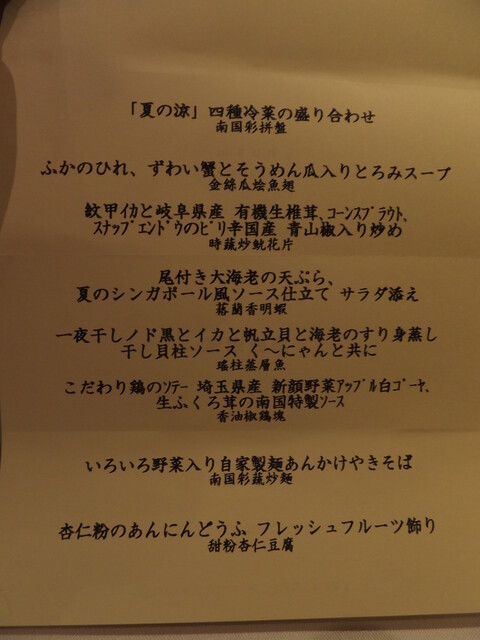 「夏の涼」四種冷菜の盛り合わせ
南国彩拼盤
ふかのひれ、ずわい蟹とそうめん瓜入りとろみスープ
金絲瓜烩魚翅
紋甲イカと岐阜県産 有機生椎茸、コーンスプラウト、
スナップエンドウのピリ辛国産 青山椒入り炒め
時蔬炒魷花片
尾付き大海老の天ぷら、
夏のシンガポール風ソース仕立て サラダ添え
蕗蘭香明蝦
一夜干しノド黒とイカと帆立貝と海老のすり身蒸し
干し貝柱ソース く〜にゃんと共に
瑤柱蒸層魚
こだわり鶏のソテー 埼玉県産 新顔野菜アップル白ゴーヤ、
生ふくろ茸の南国特製ソース
香油椒鶏塊
いろいろ野菜入り自家製麺あんかけやきそば
南国彩蔬炒麺
杏仁粉のあんにんどうふ フレッシュフルーツ飾り
甜粉杏仁豆腐